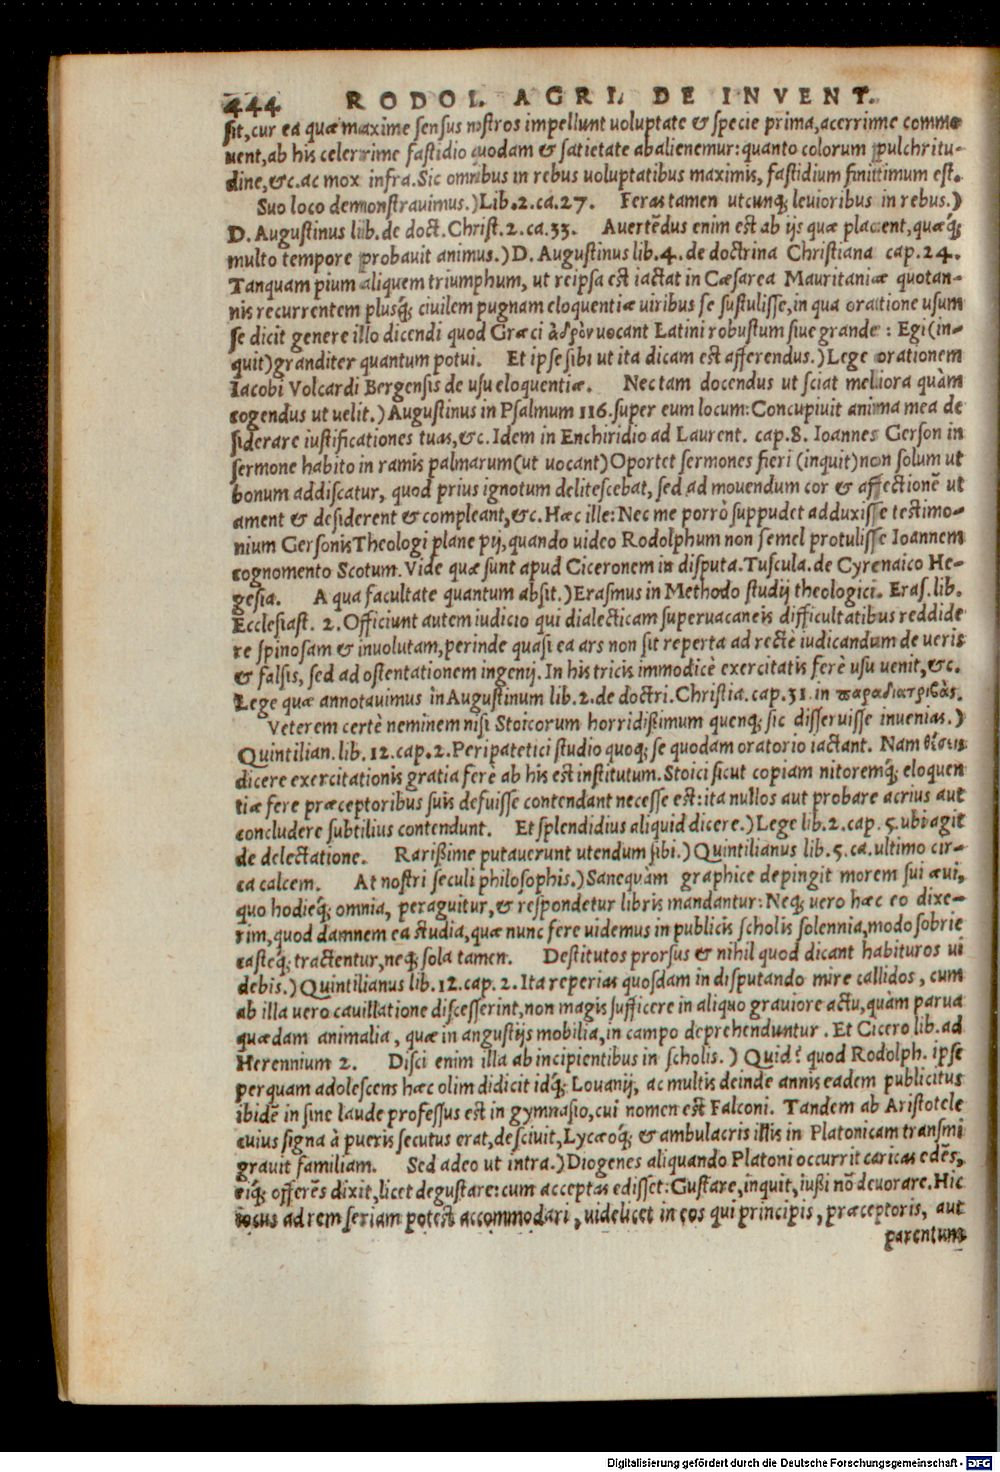 444 RODOL. AGRI. DE INVENT.
sit, cur ea quæ maxime sensus nostros impellunt uoluptate & specie prima, acerrime commo
uent, ab his celerrime fastidio quodam & satietate abalienemur: quanto colorum pulchritu-
dine, &c. ac mox infra. Sic omnibus in rebus uoluptatibus maximis, fastidium finitimum est.
Suo loco demonstrauimus.) Lib. 2. ca. 27. Feras tamen utcunq; leuioribus in rebus.)
D. Augustinus lib. de doct. Christ. 2. ca. 33. Auertēdus enim est ab ijs quæ placent, quæq́;
multo tempore probauit animus.) D. Augustinus lib. 4. de doctrina Christiana cap. 24.
Tanquam pium aliquem triumphum, ut reipsa est iactat in Cæsarea Mauritaniæ quotan-
nis recurrentem plusq́; ciuilem pugnam eloquentiæ uiribus se sustulisse, in qua oratione usum
se dicit genere illo dicendi quod Græci ἁδρὸν uocant Latini robustum siue grande: Egi (in-
quit) granditer quantum potui. Et ipse sibi ut ita dicam est afferendus.) Lege orationem
Iacobi Volcardi Bergensis de usu eloquentiæ. Nec tam docendus ut sciat meliora quàm
cogendus ut uelit.) Augustinus in Psalmum 116. super eum locum: Concupiuit anima mea de
siderare iustificationes tuas, &c. Idem in Enchiridio ad Laurent. cap. 8. Ioannes Gerson in
sermone habito in ramis palmarum (ut uocant) Oportet sermones fieri (inquit) non solum ut
bonum addiscatur, quod prius ignotum delitescebat, sed ad mouendum cor & affectionē ut
ament & desiderent & compleant, &c. Hæc ille: Nec me porrò suppudet adduxisse testimo-
nium Gersonis Theologi plane pij, quando uideo Rodolphum non semel protulisse Ioannem
cognomento Scotum. Vide quæ sunt apud Ciceronem in disputa. Tuscula. de Cyrenaico He-
gesia. A qua facultate quantum absit.) Erasmus in Methodo studij theologici. Eras. lib.
Ecclesiast. 2. Officiunt autem iudicio qui dialecticam superuacaneis difficultatibus reddide
re spinosam & inuolutam, perinde quasi ea ars non sit reperta ad rectè iudicandum de ueris
& falsis, sed ad ostentationem ingenij. In his tricis immodicè exercitatis ferè usu uenit, &c.
Lege quæ annotauimus in Augustinum lib. 2. de doctri. Christia. cap. 31. in παραδιατριβὰς.
Veterem certè neminem nisi Stoicorum horridißimum quenq; sic disseruisse inuenias.)
Quintilian. lib. 12. cap. 2. Peripatetici studio quoq; se quodam oratorio iactant. Nam θέσεις
dicere exercitationis gratia ferè ab his est institutum. Stoici sicut copiam nitoremq́; eloquen
tiæ fere præceptoribus suis defuisse contendant necesse est: ita nullos aut probare acrius aut
concludere subtilius contendunt. Et splendidius aliquid dicere.) Lege lib. 2. cap. 5. ubi agit
de delectatione. Rarißime putauerunt utendum sibi.) Quintilianus lib. 5. ca. ultimo cir-
ca calcem. At nostri seculi philosophis.) Sanequàm graphice depingit morem sui æui,
quo hodieq́; omnia, peraguitur, & respondetur libris mandantur: Neq; uero hæc eo dixe-
rim, quod damnem ea studia, quæ nunc fere uidemus in publicis scholis solennia, modo sobrie
casteq́; tractentur, neq; sola tamen. Destitutos prorsus & nihil quod dicant habituros ui
debis.) Quintilianus lib. 12. cap. 2. Ita reperias quosdam in disputando mire callidos, cum
ab illa uero cauillatione discesserint, non magis sufficere in aliquo grauiore actu, quàm parua
quædam animalia, quæ in angustijs mobilia, in campo deprehenduntur. Et Cicero lib. ad
Herennium 2. Disci enim illa ab incipientibus in scholis.) Quid? quod Rodolph. ipse
perquam adolescens hæc olim didicit idq́; Louanij, ac multis deinde annis eadem publicitus
ibidē in sine laude professus est in gymnasio, cui nomen est Falconi. Tandem ab Aristotele
cuius signa à pueris secutus erat, desciuit, Lycæoq́; & ambulacris illis in Platonicam transmi
grauit familiam. Sed adeo ut intra.) Diogenes aliquando Platoni occurrit caricas edēs,
eiq́; offerēs dixit, licet degustare: cum acceptas edisset: Gustare, inquit, iußi nō deuorare. Hic
iocus ad rem seriam potest accommodari, uidelicet in eos qui principis, præceptoris, aut
parentum
Digitalisierung gefördert durch die Deutsche Forschungsgemeinschaft - DFG